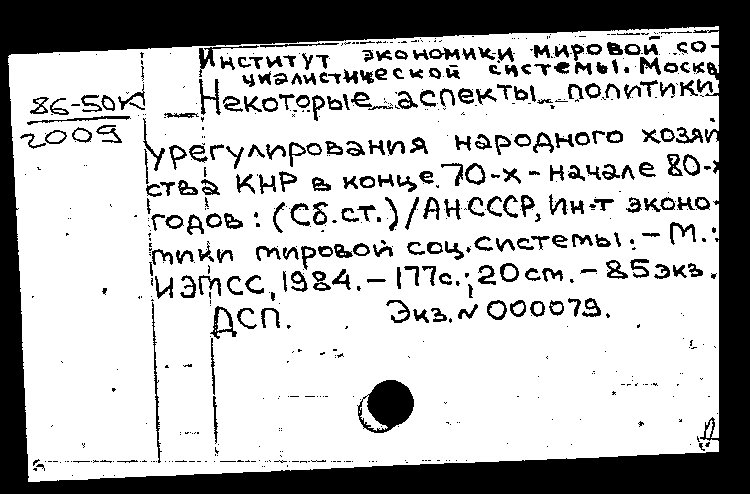 Институт экономики мировой со-
циалистической системы. Москва
86-50К
2009
Некоторые аспекты политики
урегулирования народного хозяй
ства КНР в конце 70-х - начале 80-х
годов: (Сб.ст.)/АН СССР, Ин-т эконо-
мики мировой соц. системы. - М.:
ИЭМСС, 1984. - 177с.; 20см. - 85экз.
ДСП. Экз. N 000079.